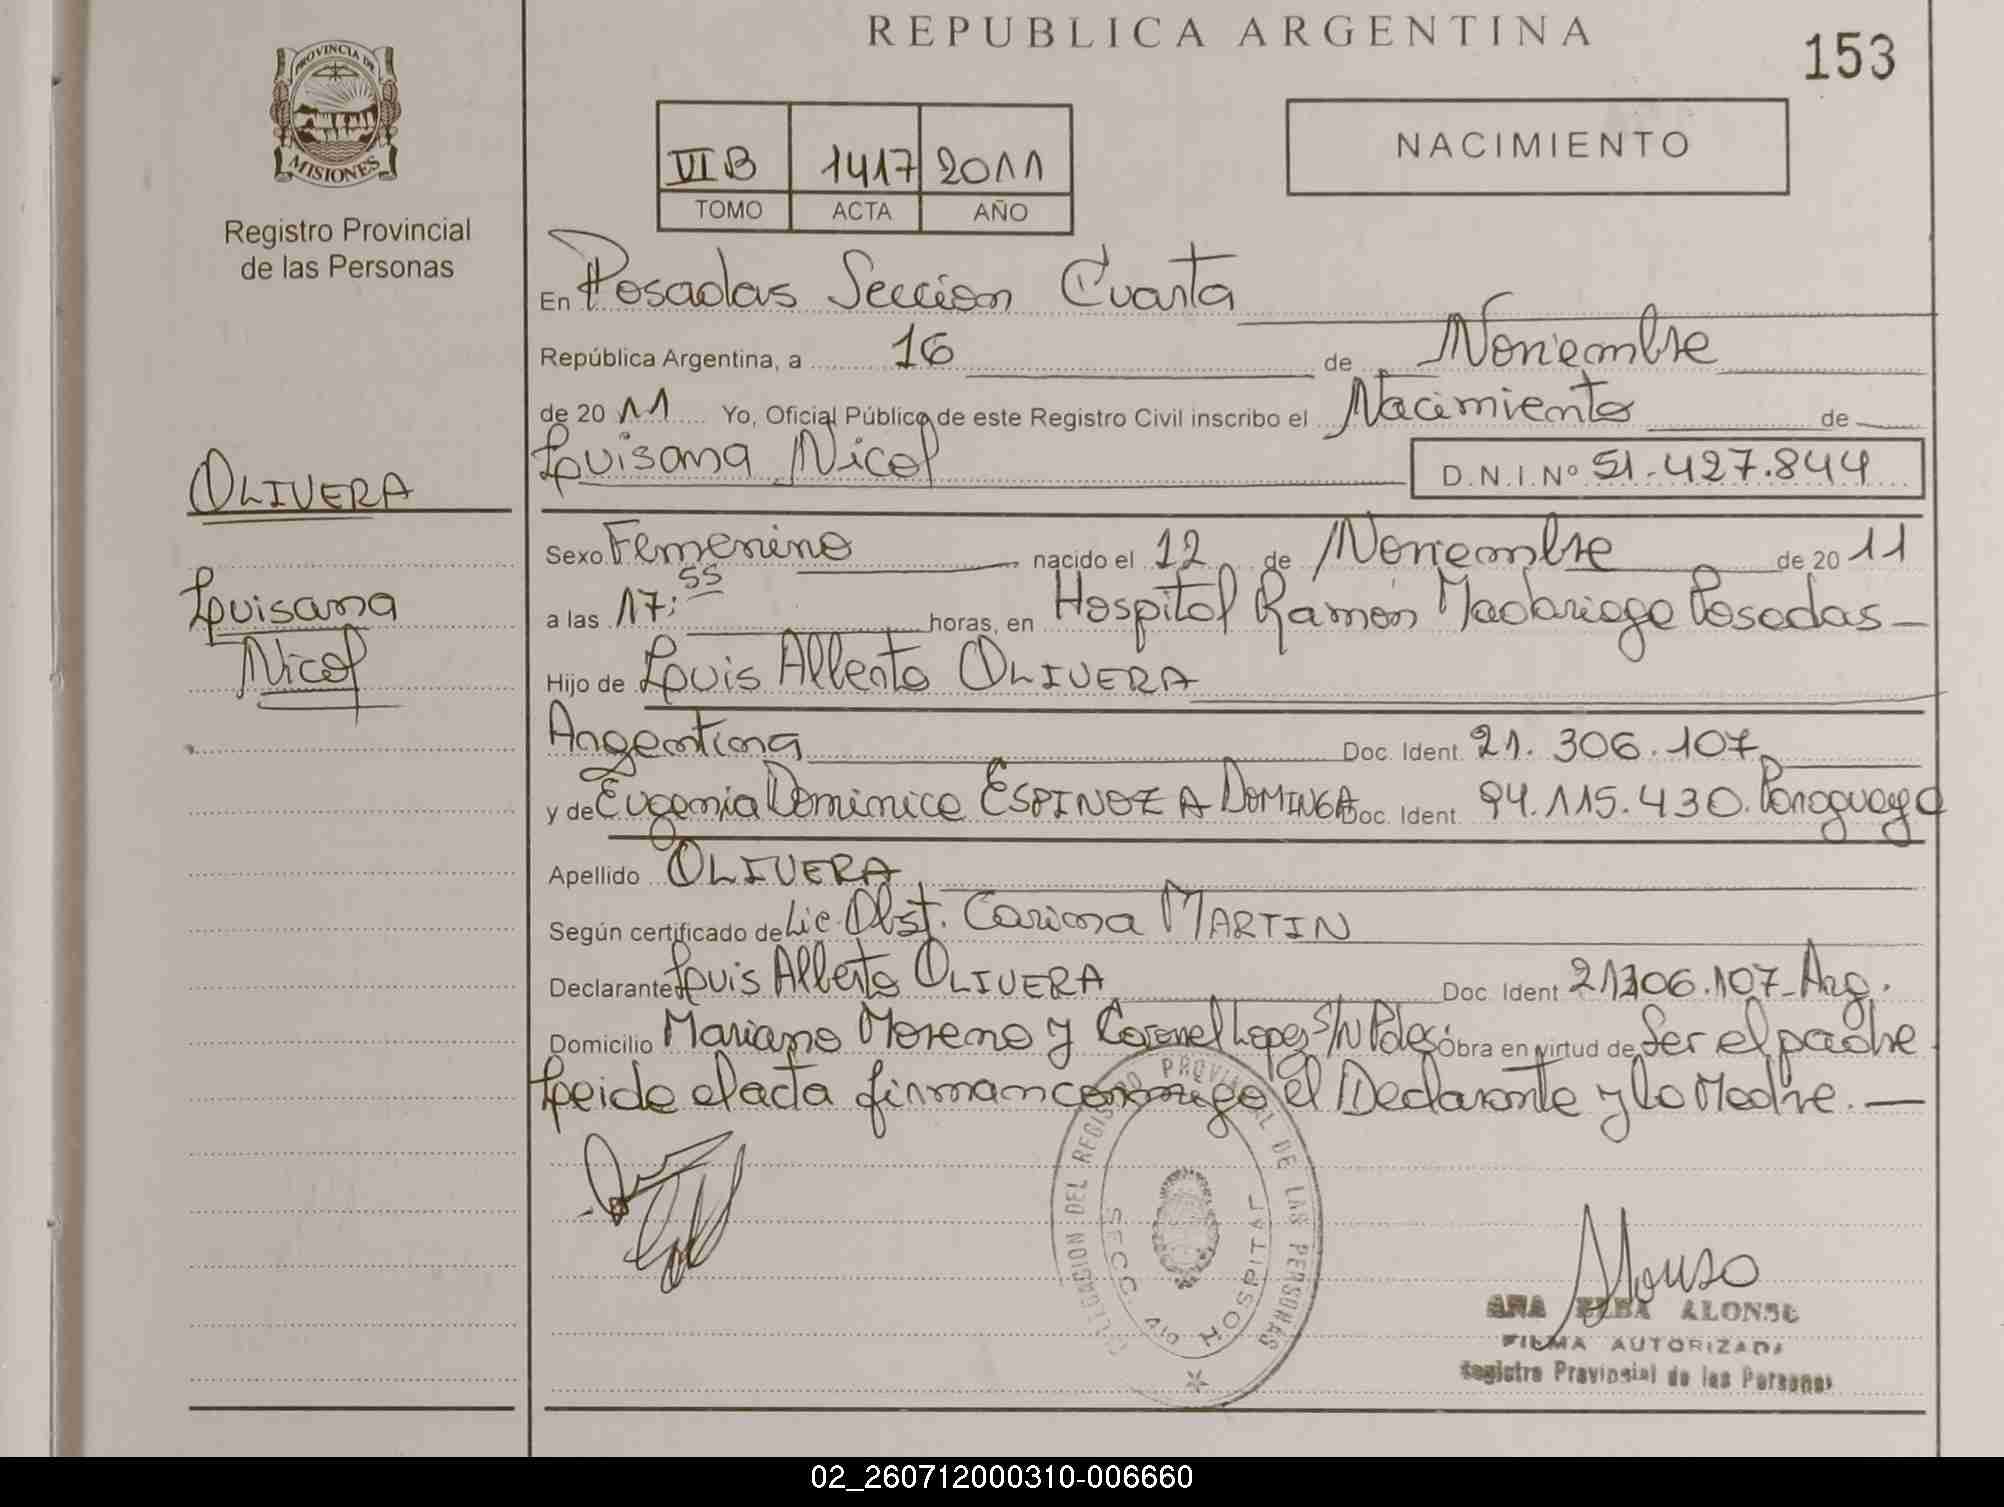 REPUBLICA ARGENTINA
153
PROVINCIA DE
MISIONES
Registro Provincial
de las Personas
VI B 1417 2011
TOMO ACTA AÑO
NACIMIENTO
En Posadas Seccion Cuarta
República Argentina, a 16 de Noviembre
de 20 11 Yo, Oficial Público de este Registro Civil inscribo el Nacimiento de
Luisana Nicol D.N.I.Nº 51.427.844
OLIVERA
Luisana
Nicol
Sexo Femenino nacido el 12 de Noviembre de 20 11
a las 17:55 horas, en Hospital Ramón Madariaga Posadas
Hijo de Luis Alberto OLIVERA
Argentina Doc. Ident. 21.306.107
y de Eugenia Dominica ESPINOZA DOMINGA Doc. Ident. 94.115.430. Paraguaya
Apellido OLIVERA
Según certificado de Lic. Obst. Carina MARTIN
Declarante Luis Alberto OLIVERA Doc. Ident 21306.107 Arg.
Domicilio Mariano Moreno y Coronel Lopez S/N Pdas Obra en virtud de Ser el padre
Leida el acta firman conmigo el Declarante y la Madre.
DELEGACION DEL REGISTRO PROVINCIAL DE LAS PERSONAS
SECC. 4ta HOSPITAL
Alonso
ANA ELBA ALONSO
FIRMA AUTORIZADA
Registro Provincial de las Personas
02_260712000310-006660